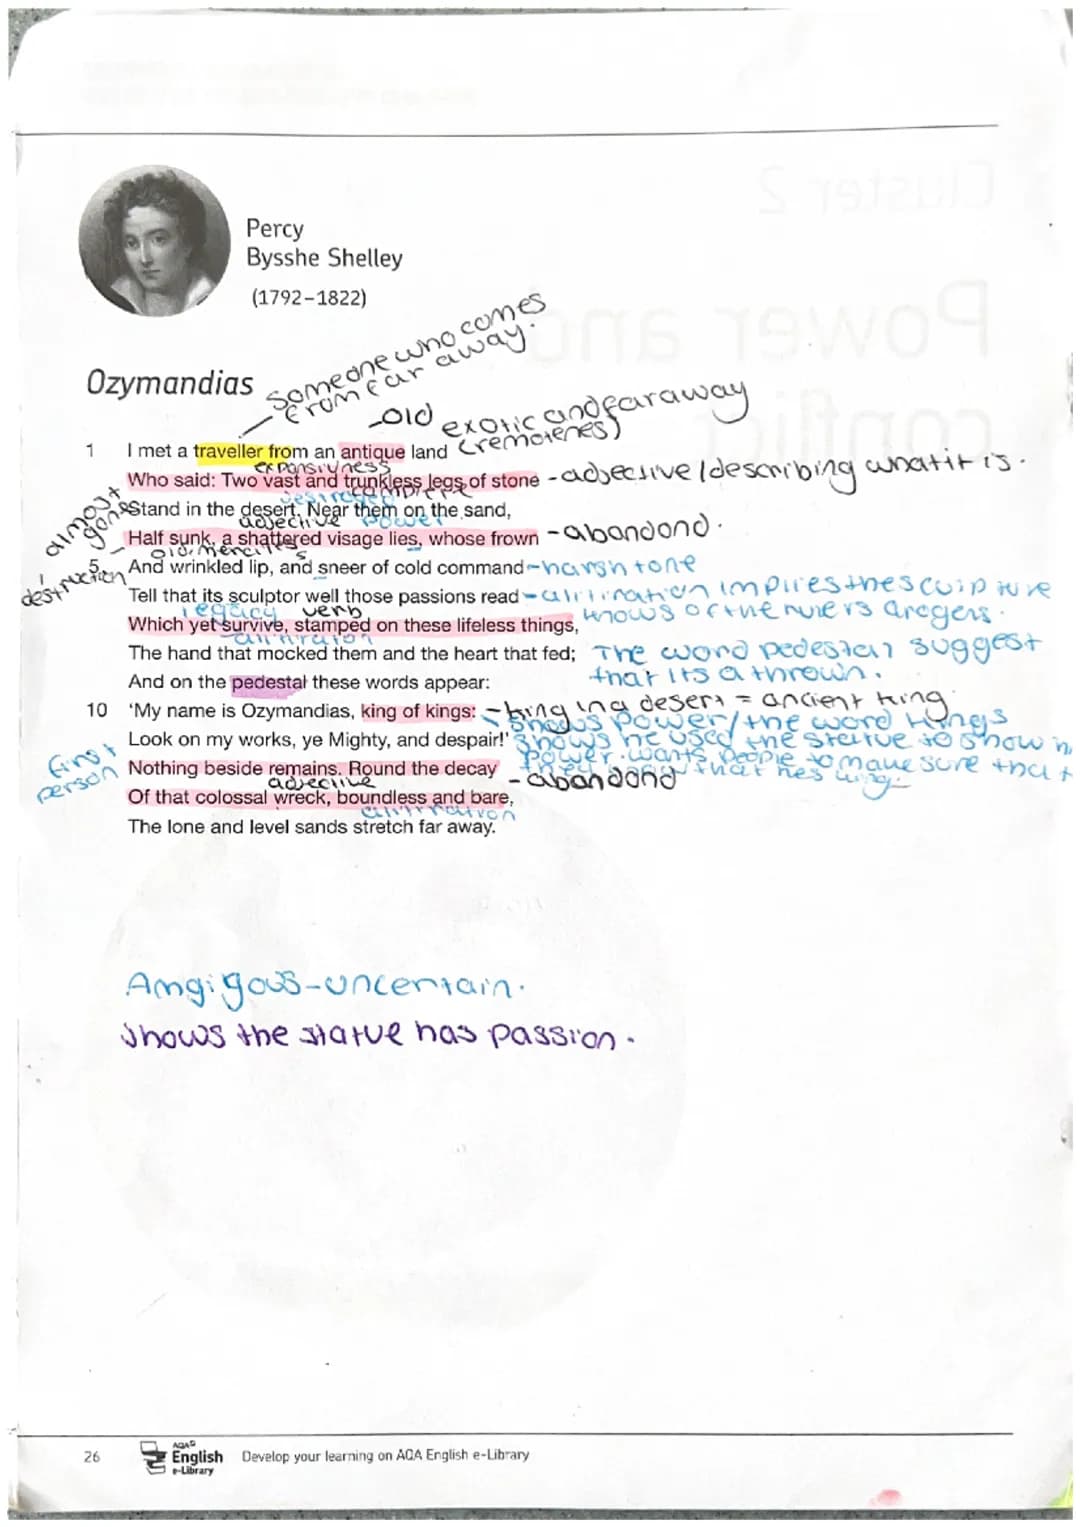 Cluster 2
Power and
conflict
Percy
Bysshe Shelley
(1792–1822)
someone who comes
from far away.
Ozymandias
-old
exotic and faraway
(remotenes)
1 I met a traveller from an antique land
expansivness
Who said: Two vast and trunkless legs of stone -adjective/describing what it is.
almost
gone
destroyed
Stand in the desert. Near them on the sand,
adjective power
Half sunk, a shattered visage lies, whose frown -abandond.
old,
destruction
5 And wrinkled lip, and sneer of cold command -harsh tone
Tell that its sculptor well those passions read - impires the
knows of the rulers
legacy verb
Which yet survive, stamped on these lifeless things,
The hand that mocked them and the heart that fed;
The word pedestal suggest
that its a thrown.
And on the pedestal these words appear:
10 'My name is Ozymandias, king of kings: -king in a desert = ancient king.
shows power/the word kings
Look on my works, ye Mighty, and despair!' shows he used the statue to show
power. wants people to make sure that
first
person
Nothing beside remains. Round the decay -abandond
that hes king.
adjective
Of that colossal wreck, boundless and bare,
The lone and level sands stretch far away.
Angigous-uncertain.
shows the statue has passion.
26
AQA
English
e-Library
Develop your learning on AQA English e-Library